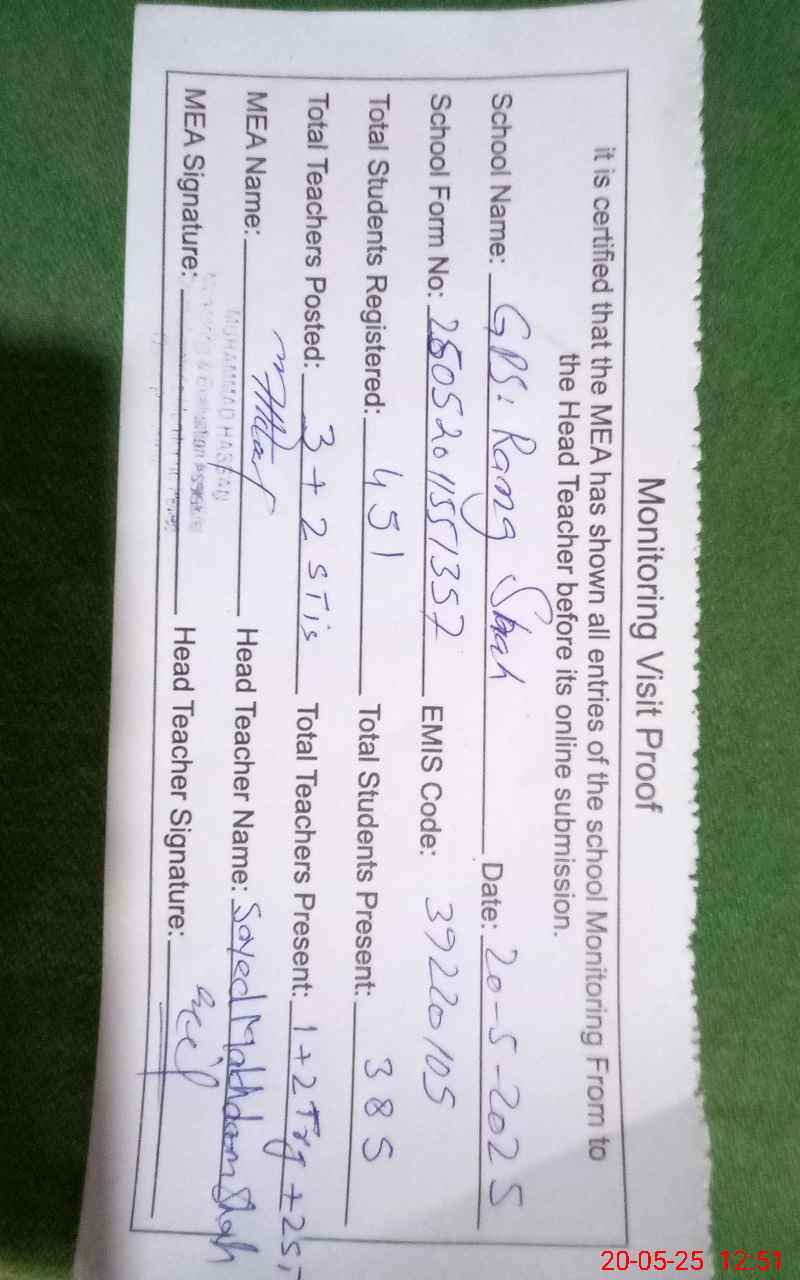 Monitoring Visit Proof
it is certified that the MEA has shown all entries of the school Monitoring From to
the Head Teacher before its online submission.
School Name: GPS: Rang Shah Date: 20-5-2025
School Form No: 2505201551357 EMIS Code: 39220105
Total Students Registered: 451 Total Students Present: 385
Total Teachers Posted: 3 + 2 STis Total Teachers Present: 1 + 2 Trg + 2S
MEA Name: Head Teacher Name: Sayed Makhdom Shah
MUHAMMAD HASSAN
MEA Signature: Head Teacher Signature:
20-05-25 12:51